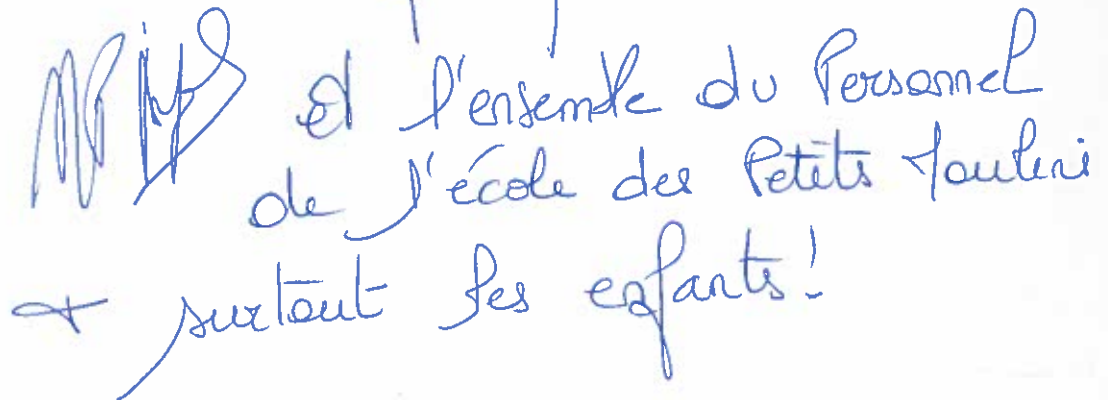 et l'ensemble du Personnel
de l'école des Petits
+ surtout les enfants!